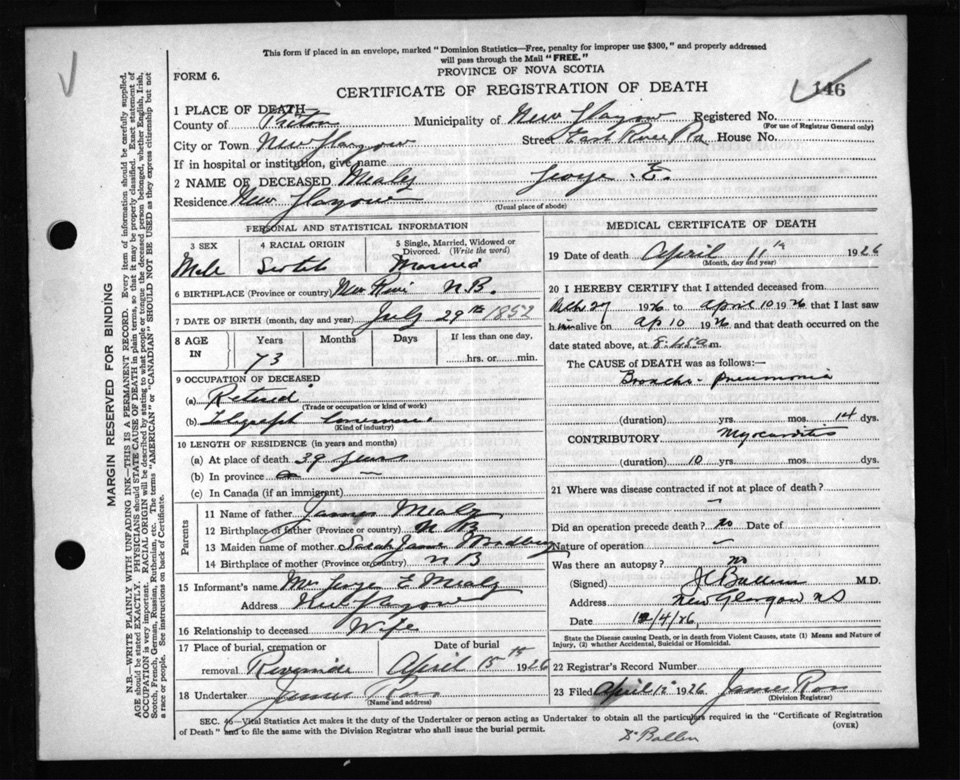 This form if placed in an envelope, marked "Dominion Statistics—Free, penalty for improper use $300," and properly addressed
will pass through the Mail "FREE."
FORM 6.
PROVINCE OF NOVA SCOTIA
CERTIFICATE OF REGISTRATION OF DEATH
146
1 PLACE OF DEATH
County of Pictou Municipality of New Glasgow Registered No.
(For use of Registrar General only)
City or Town New Glasgow Street East River Rd House No.
If in hospital or institution, give name
2 NAME OF DECEASED Mealy George E.
Residence New Glasgow
(Usual place of abode)
PERSONAL AND STATISTICAL INFORMATION
3 SEX 4 RACIAL ORIGIN 5 Single, Married, Widowed or Divorced. (Write the word)
Male Scotch Married
6 BIRTHPLACE (Province or country) N.B.
7 DATE OF BIRTH (month, day and year) July 29th 1852
8 AGE IN Years Months Days If less than one day,
73 hrs. or min.
9 OCCUPATION OF DECEASED
(a) Retired
(Trade or occupation or kind of work)
(b) Telegraph
(Kind of industry)
10 LENGTH OF RESIDENCE (in years and months)
(a) At place of death 39 years
(b) In province
(c) In Canada (if an immigrant)
Parents
11 Name of father James Mealy
12 Birthplace of father (Province or country) N B
13 Maiden name of mother Sarah Jane
14 Birthplace of mother (Province or country) N B
15 Informant's name Mrs George E Mealy
Address New Glasgow
16 Relationship to deceased Wife
17 Place of burial, cremation or removal Riverside Date of burial April 15th 1926
18 Undertaker James Ross
(Name and address)
MEDICAL CERTIFICATE OF DEATH
19 Date of death April 11th 1926
(Month, day and year)
20 I HEREBY CERTIFY that I attended deceased from
27 1926 to April 10 1926 that I last saw
him alive on Ap 10 1926 and that death occurred on
date stated above, at m.
The CAUSE OF DEATH was as follows:—
Broncho-pneumonia
(duration) yrs. mos. 14 dys.
CONTRIBUTORY Myocarditis
(duration) 10 yrs. mos. dys.
21 Where was disease contracted if not at place of death?
Did an operation precede death? no Date of
Nature of operation –
Was there an autopsy? no
(Signed) M.D.
Address New Glasgow NS
Date 12/4/26,
State the Disease causing Death, or in death from Violent Causes, state (1) Means and Nature of
Injury, (2) whether Accidental, Suicidal or Homicidal.
22 Registrar's Record Number
23 Filed April 12 1926 James Ross
(Division Registrar)
SEC. 46—Vital Statistics Act makes it the duty of the Undertaker or person acting as Undertaker to obtain all the particulars required in the "Certificate of Registration
of Death" and to file the same with the Division Registrar who shall issue the burial permit.
(OVER)
MARGIN RESERVED FOR BINDING
N.B.—WRITE PLAINLY WITH UNFADING INK—THIS IS A PERMANENT RECORD. Every item of information should be carefully supplied.
AGE should be stated EXACTLY. PHYSICIANS should STATE CAUSE OF DEATH in plain terms, so that it may be properly classified. Exact statement of
OCCUPATION is very important. RACIAL ORIGIN will be described by stating to what people or tongue the deceased person belonged, whether English, Irish,
Scotch, French, German, Russian, Ruthenian, etc. The terms "AMERICAN" or "CANADIAN" SHOULD NOT BE USED as they express citizenship but not
a race or people. See instructions on back of Certificate.